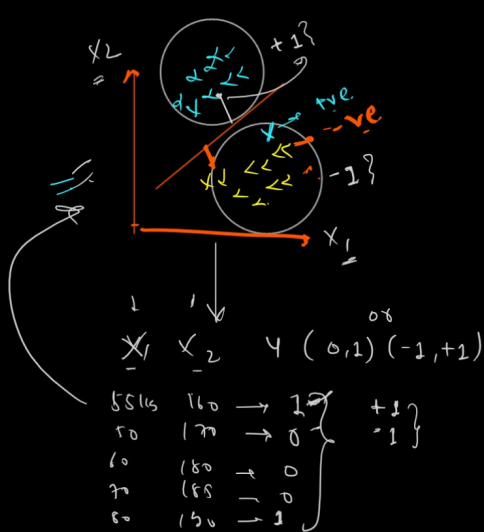 X2
+1}
+ve
-ve
-1}
X1
or
X1 X2 Y (0,1) (-1,+1)
55kg 160 → 1
50 170 → 0
60 180 - 0
70 185 - 0
80 150 → 1
+1
-1}